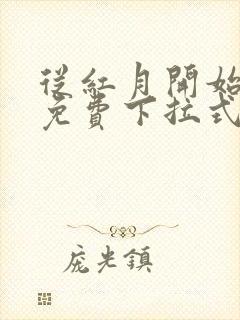 從紅月開始
免費下拉式
庞光鎮